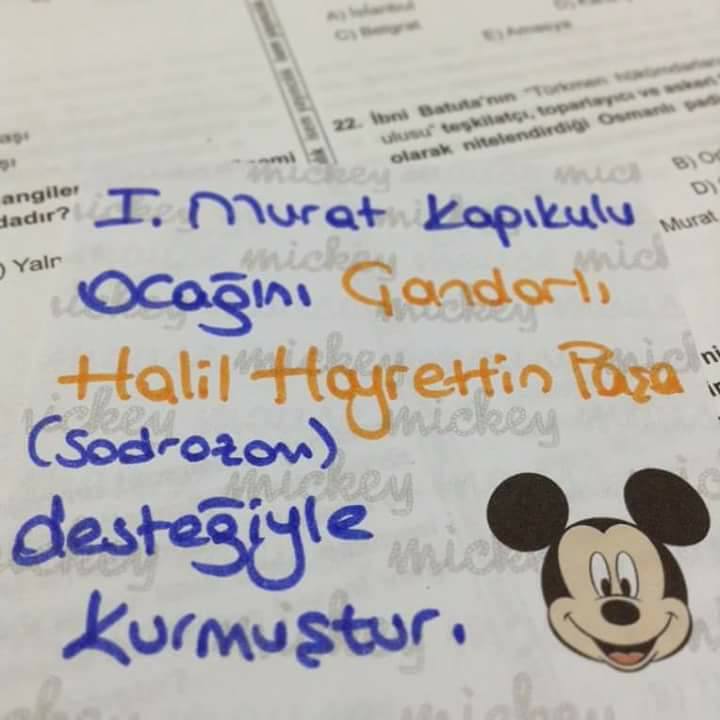 A) İstanbul
C) Belgrat
E) Amasya
22. İbni Batuta'nın "Türkmen hükümdarları
ulusu" teşkilatçı, toparlayıcı ve askeri
olarak nitelendirdiği Osmanlı
B)
D)
Murat
angiler
dadır?
mickey
I. Murat Kapıkulu
Ocağını Çandarlı
Halil Hayrettin Paşa
(Sadrazam)
desteğiyle
kurmuştur.